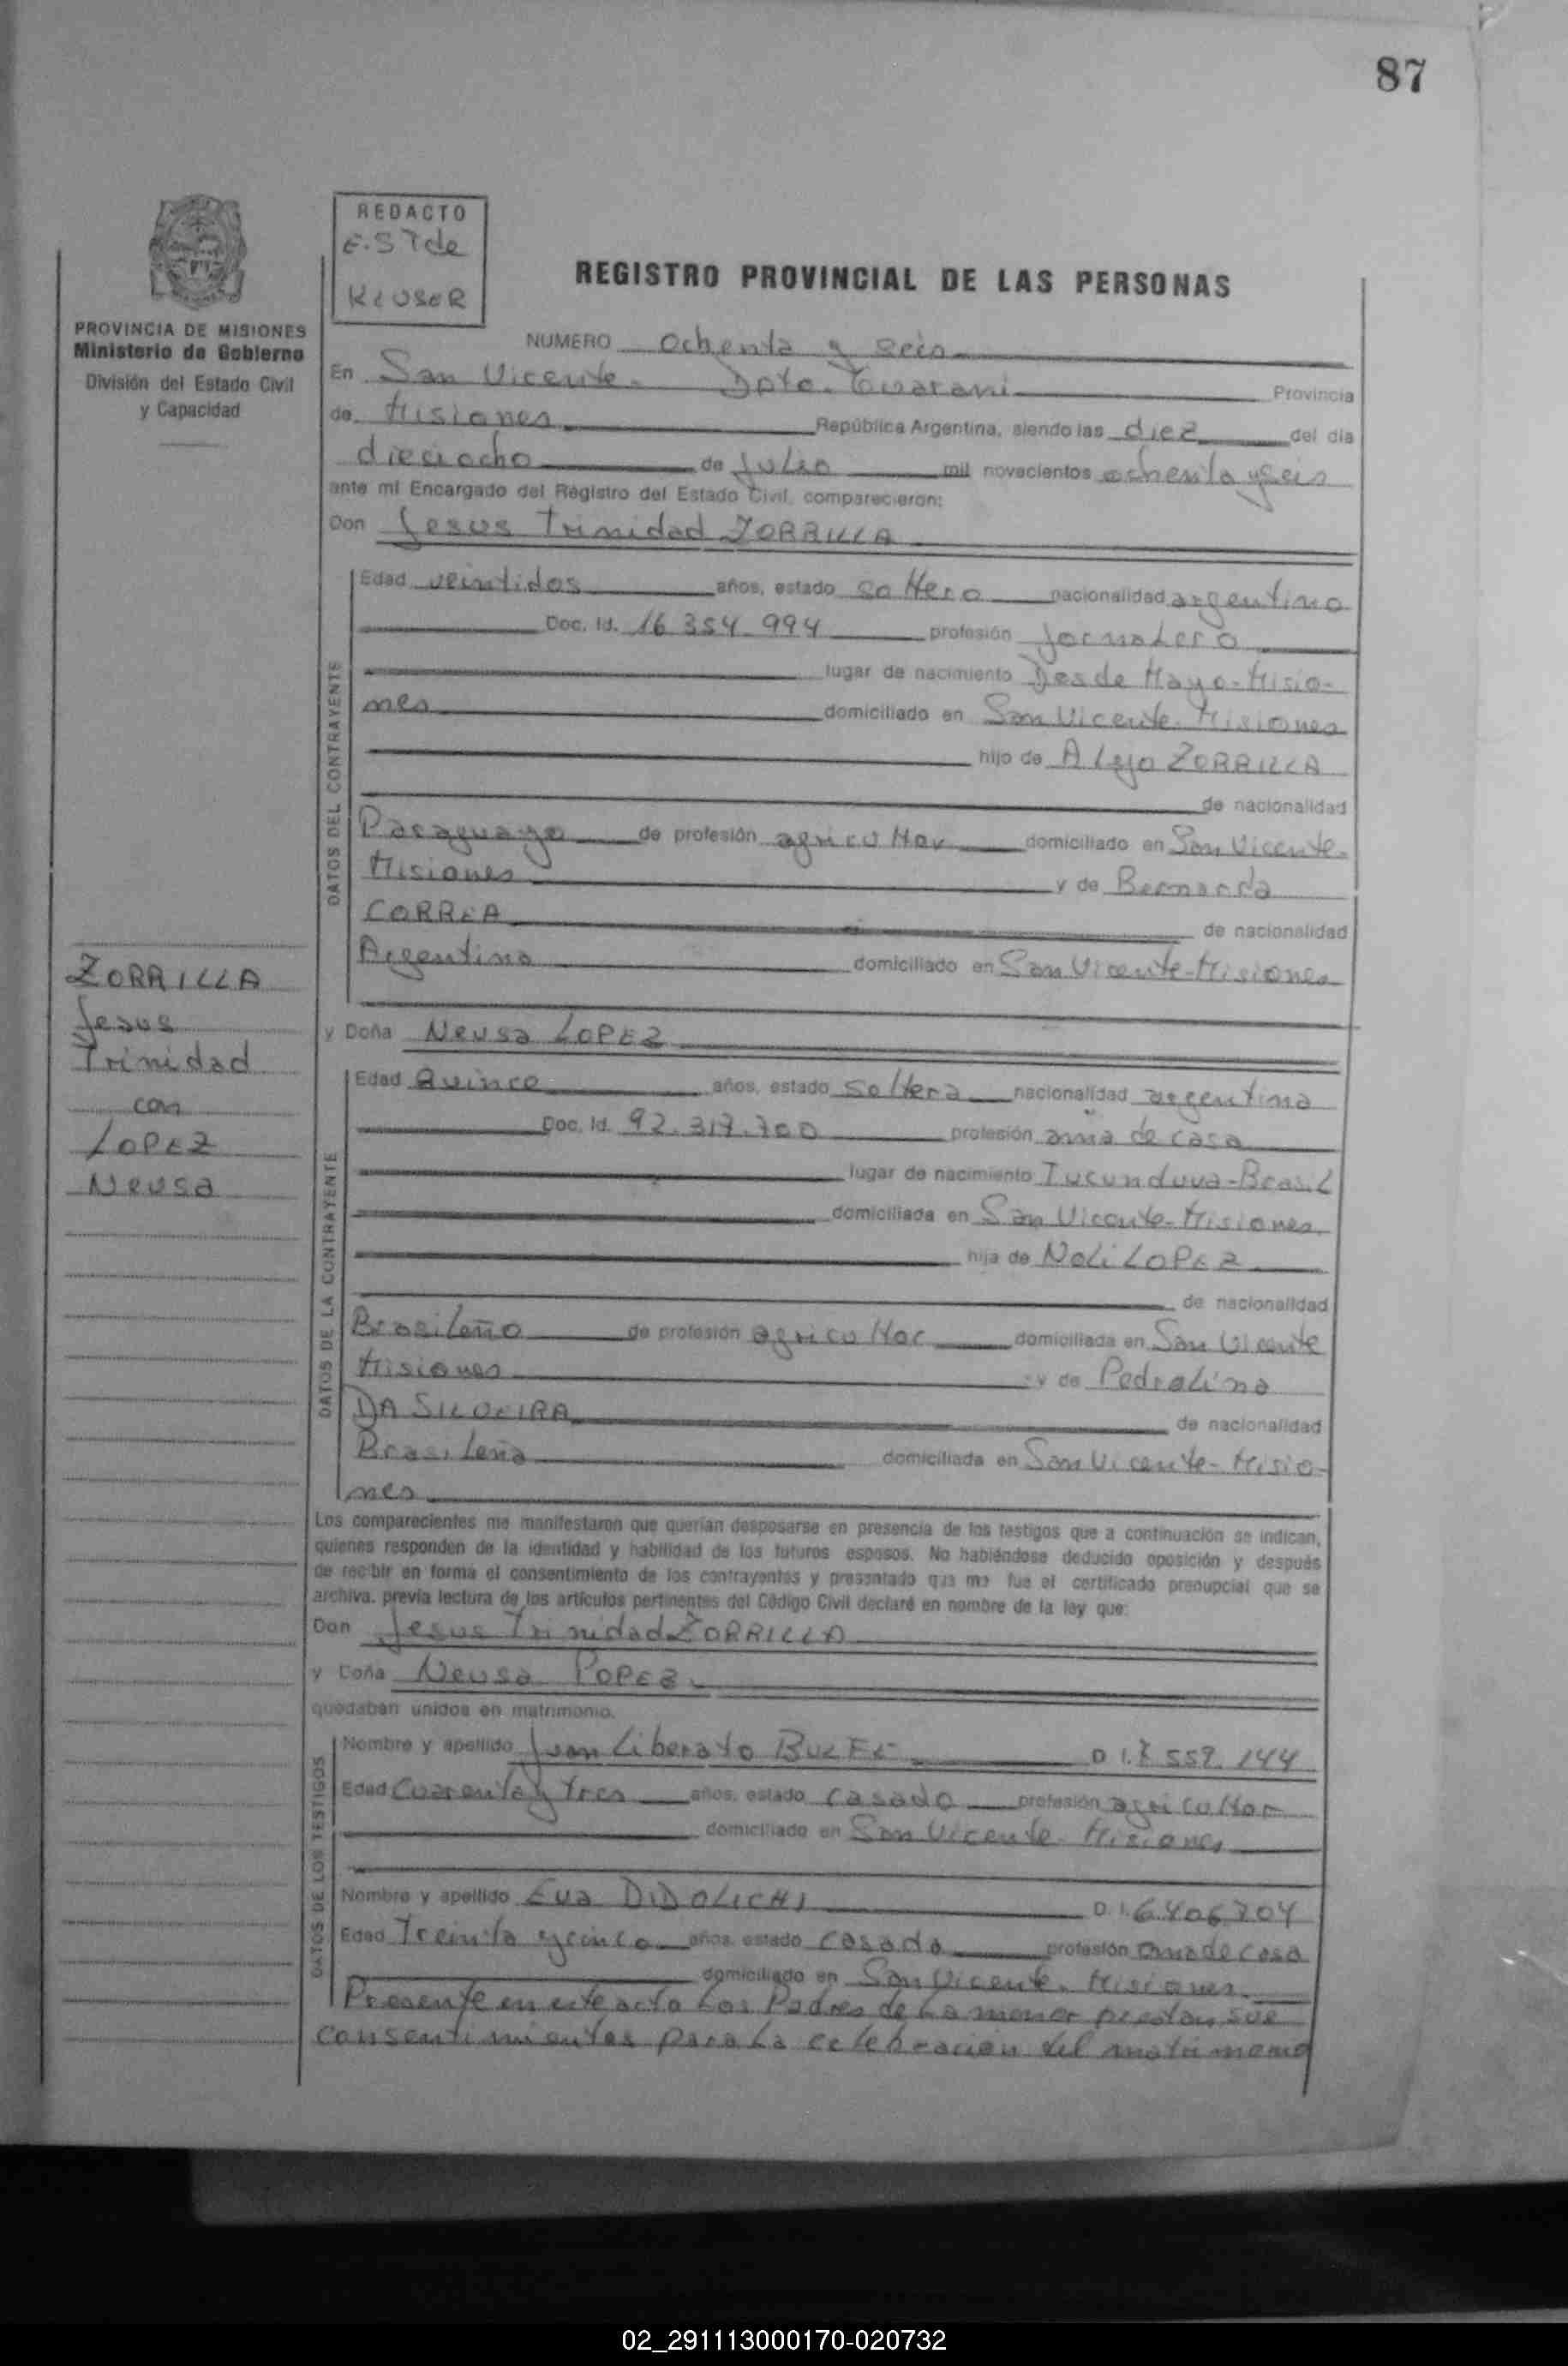 87
REDACTO
E. S T de
KEUSER
REGISTRO PROVINCIAL DE LAS PERSONAS
PROVINCIA DE MISIONES
Ministerio de Gobierno
División del Estado Civil
y Capacidad
NUMERO ochenta y seis
En San Vicente - Dpto. Guarani Provincia
de Misiones República Argentina, siendo las diez del día
dieciocho de Julio mil novecientos ochenta y seis
ante mi Encargado del Registro del Estado Civil, comparecieron:
Don Jesus Trinidad ZORRILLA
DATOS DEL CONTRAYENTE
Edad veintidos años, estado soltero nacionalidad argentino
Doc. Id. 16.354.994 profesión Jornalero
lugar de nacimiento Dos de Mayo - Misio-
nes domiciliado en San Vicente - Misiones
hijo de Alejo ZORRILLA
de nacionalidad
Paraguayo de profesión agricultor domiciliado en San Vicente -
Misiones y de Bernarda
CORREA de nacionalidad
Argentina domiciliado en San Vicente - Misiones
ZORRILLA
Jesus
Trinidad
con
LOPEZ
Neusa
y Doña Neusa LOPEZ
DATOS DE LA CONTRAYENTE
Edad Quince años, estado soltera nacionalidad argentina
Doc. Id. 92.317.700 profesión ama de casa
lugar de nacimiento Tucunduva - Brasil
domiciliada en San Vicente - Misiones
hija de Noli LOPEZ
de nacionalidad
Brasileño de profesión agricultor domiciliada en San Vicente
Misiones y de Pedrolina
DA SILVEIRA de nacionalidad
Brasileña domiciliada en San Vicente - Misio-
nes
Los comparecientes me manifestaron que querían desposarse en presencia de los testigos que a continuación se indican,
quienes responden de la identidad y habilidad de los futuros esposos. No habiéndose deducido oposición y después
de recibir en forma el consentimiento de los contrayentes y presentado que me fue el certificado prenupcial que se
archiva, previa lectura de los artículos pertinentes del Código Civil declaré en nombre de la ley que:
Don Jesus Trinidad ZORRILLA
y Doña Neusa POPEZ
quedaban unidos en matrimonio.
DATOS DE LOS TESTIGOS
Nombre y apellido Juan Liberato D. I. 559.144
Edad cuarenta y tres años, estado casado profesión agricultor
domiciliado en San Vicente - Misiones
Nombre y apellido Eva DIDOLICHI D. I. 6.406.704
Edad Treinta y cinco años, estado casada profesión ama de casa
domiciliado en San Vicente - Misiones
Presente en este acto los Padres de la menor prestan sus
consentimientos para la celebracion del matrimonio
02_291113000170-020732